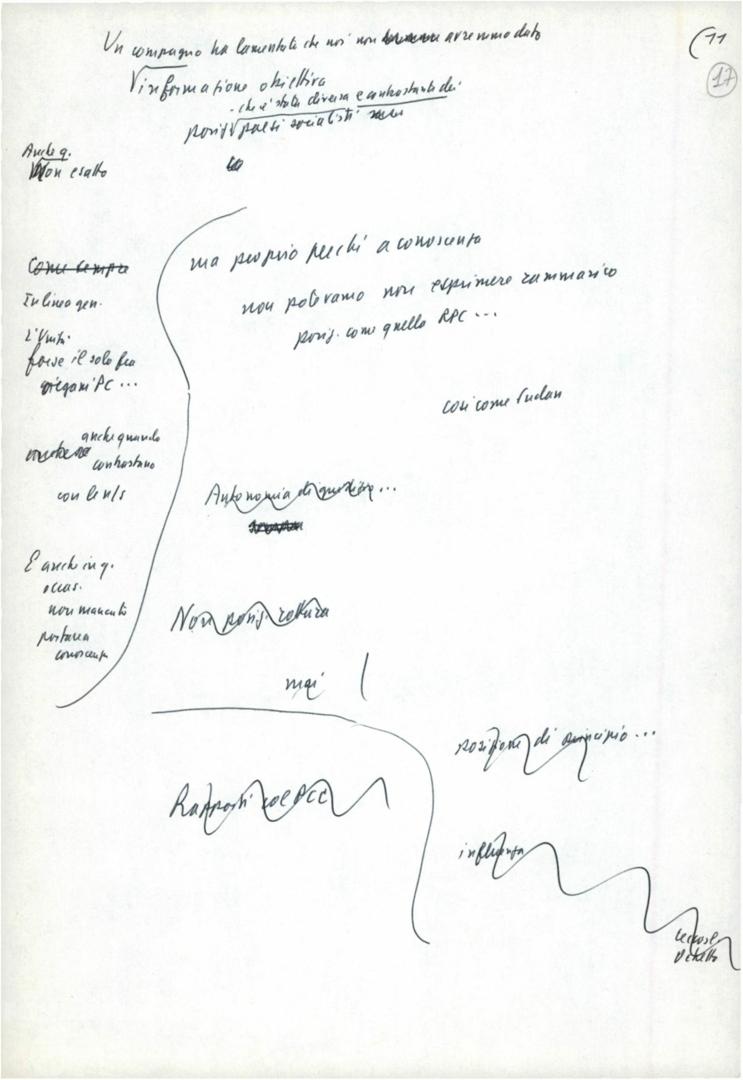 (11
17
Un compagno ha lamentato che noi non avremmo dato
informazione obiettiva
che è stata diversa e contrastante dei
posiz. paesi socialisti
Anche q.
Non esatto
Come sempre
In linea gen.
L'Unità
forse il solo fra
organi PC ...
anche quando
contrastano
con le n/s
E anche in q.
occas.
non mancato
portare a
conoscenza
ma proprio perché a conoscenza
non potevamo non esprimere rammarico
posiz. come quella RPC ...
così come Sudan
Autonomia di giudizio ...
Non posiz. rottura
mai
Rapporti col PCC
posizione di principio ...
influenza